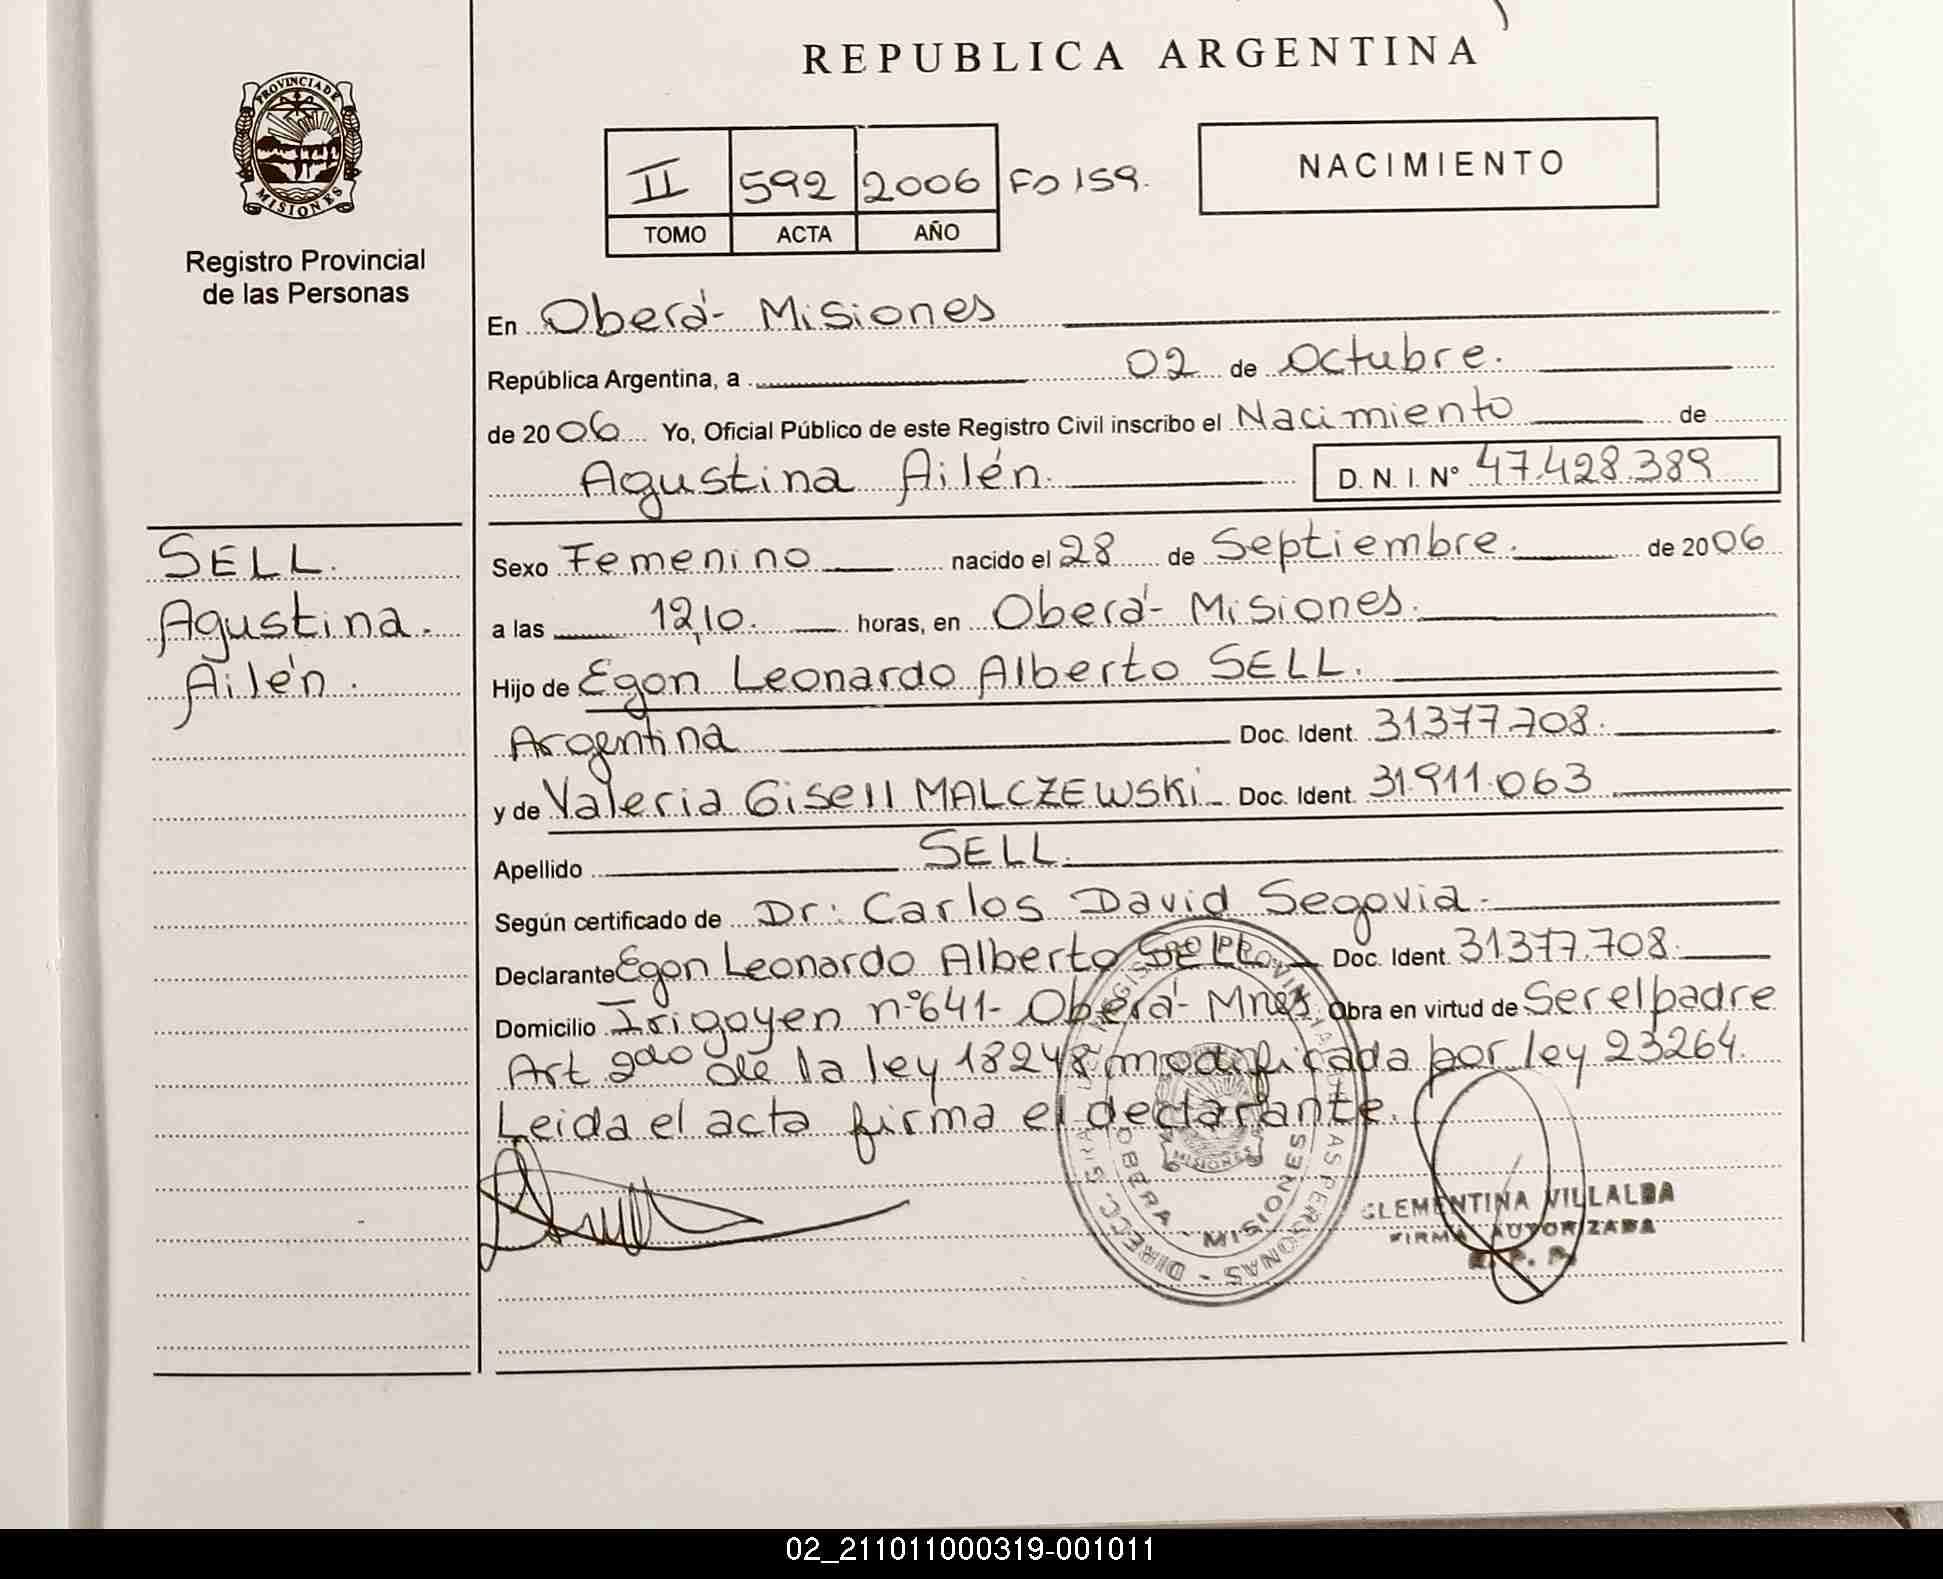 REPUBLICA ARGENTINA
PROVINCIA DE
MISIONES
Registro Provincial
de las Personas
II 592 2006 Fo 159.
TOMO ACTA AÑO
NACIMIENTO
En Oberá- Misiones
República Argentina, a 02 de Octubre.
de 2006 Yo, Oficial Público de este Registro Civil inscribo el Nacimiento de
Agustina Ailén. D. N. I. Nº 47.428.389
SELL.
Agustina.
Ailén.
Sexo Femenino nacido el 28 de Septiembre. de 2006
a las 12,10. horas, en Oberá- Misiones.
Hijo de Egon Leonardo Alberto SELL.
Argentina Doc. Ident. 31.377.708.
y de Valeria Gisell MALCZEWSKi Doc. Ident. 31.911.063
Apellido SELL.
Según certificado de Dr: Carlos David Segovia.
Declarante Egon Leonardo Alberto SELL Doc. Ident. 31.377.708.
Domicilio Irigoyen nº641- Oberá- Mnes. Obra en virtud de Ser el padre
Art 2do de la ley 18248 modificada por ley 23264.
Leida el acta firma el declarante.
OBERA - MISIONES
MISIONES
CLEMENTINA VILLALBA
FIRMA AUTORIZADA
02_211011000319-001011